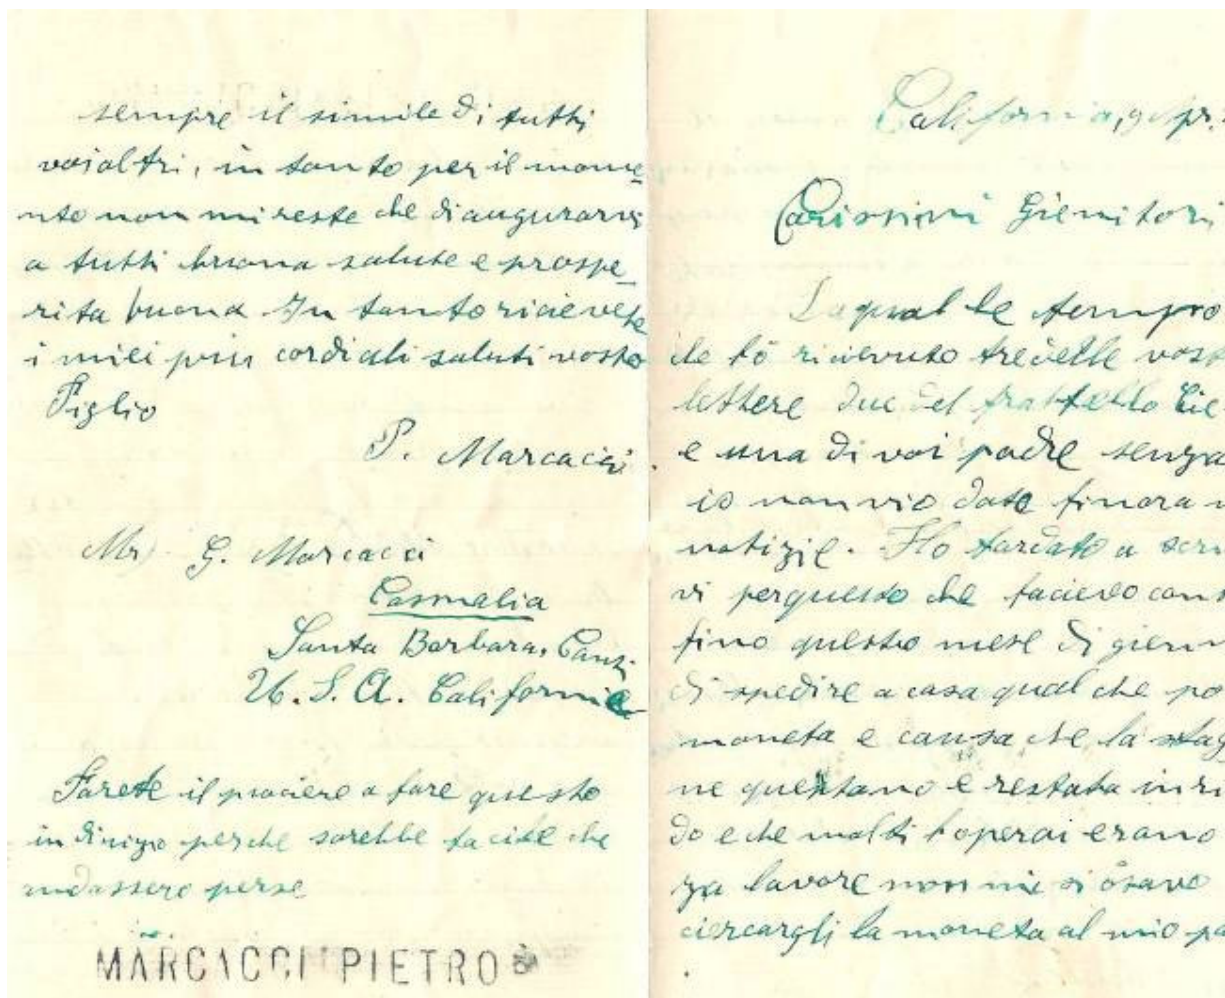 sempre il simile di tutti
voialtri, in tanto per il mome
nto non mi reste che di augurarvi
a tutti buona salute e prospe_
rita buona In tanto ricievete
i miei piu cordiali saluti vostro
Figlio
P. Marcacci.
Mr. G. Marcacci
Casmalia
Santa Barbara, Cant.
U. S. A. California
Farete il piaciere a fare questo
indirizo perche sarebbe facile che
andassero perse
MARCACCI PIETRO
California, 9
Carissimi Gienitori
La qual le tempo
che tó ricievuto
lettere due del frattello
e una di voi padre senza
io non vio dato finora
notizie. Ho tardato a scri
vi perquesto che facievo
fino questo mese di gienn
di spedire a casa qual che po
moneta e causa che la stag
ne questano e restata in ri
do e che molti operai erano
za lavore non mi si osavo
ciercargli la moneta al mio pa